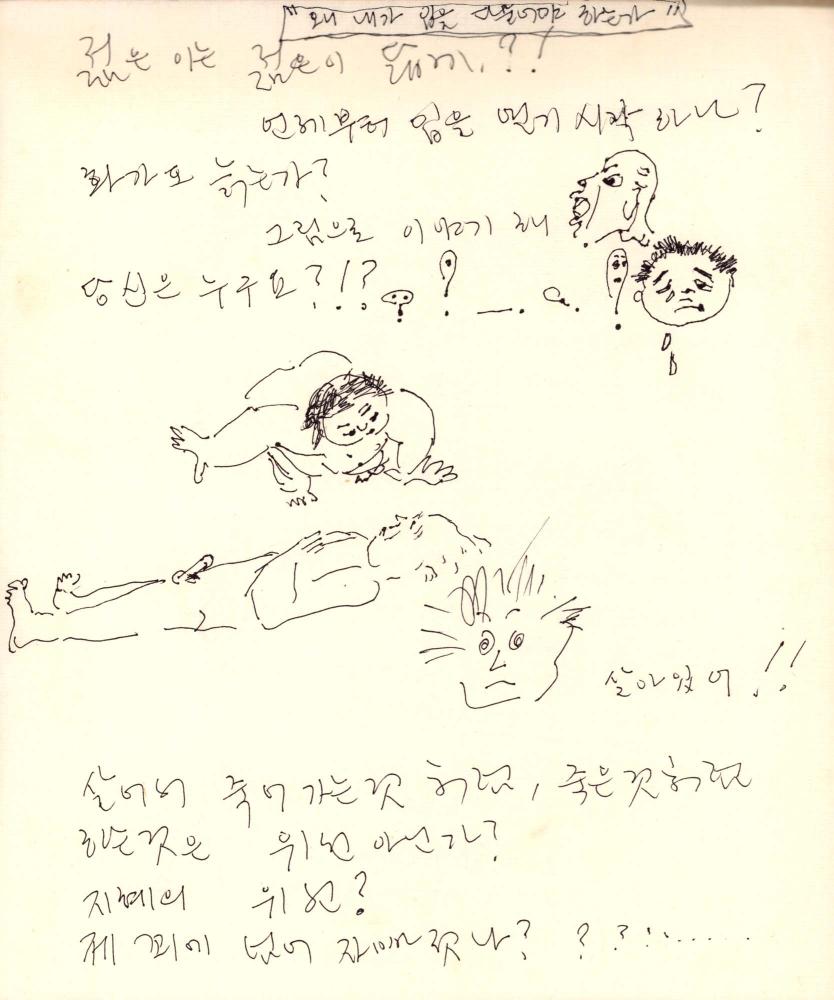 "왜 내가 입을 다물어야 하는가"
젊은 이는 젊은이 답게.??!
언제부터 입을 열기 시작 하나?
화가도 늙는가?
그림으로 이야기 해
당신은 누구요?!?
살아있어!!
살어서 죽어가는것 처럼, 죽은것처럼
하는것은 위선 아닌가?
지혜의 위선?
제 꾀에 넘어 자빠졌나? ? ? ! . . . . . .